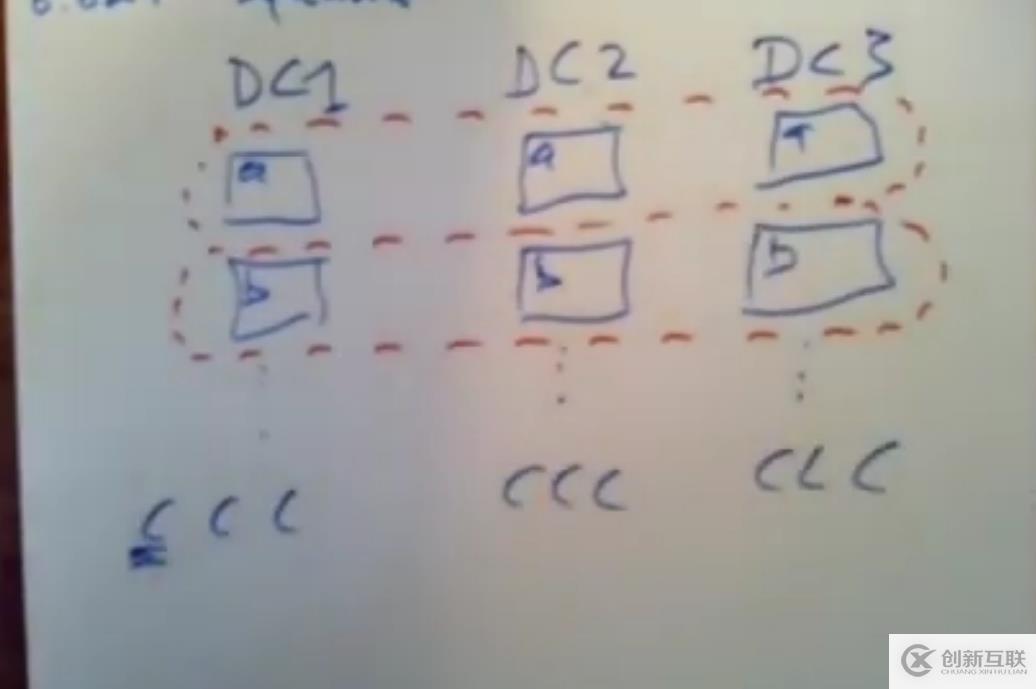 6.824
DC1 DC2 DC3
a a a
b b b
C C C C C C C C C
创新互联
CHUANG XIN HU LIAN